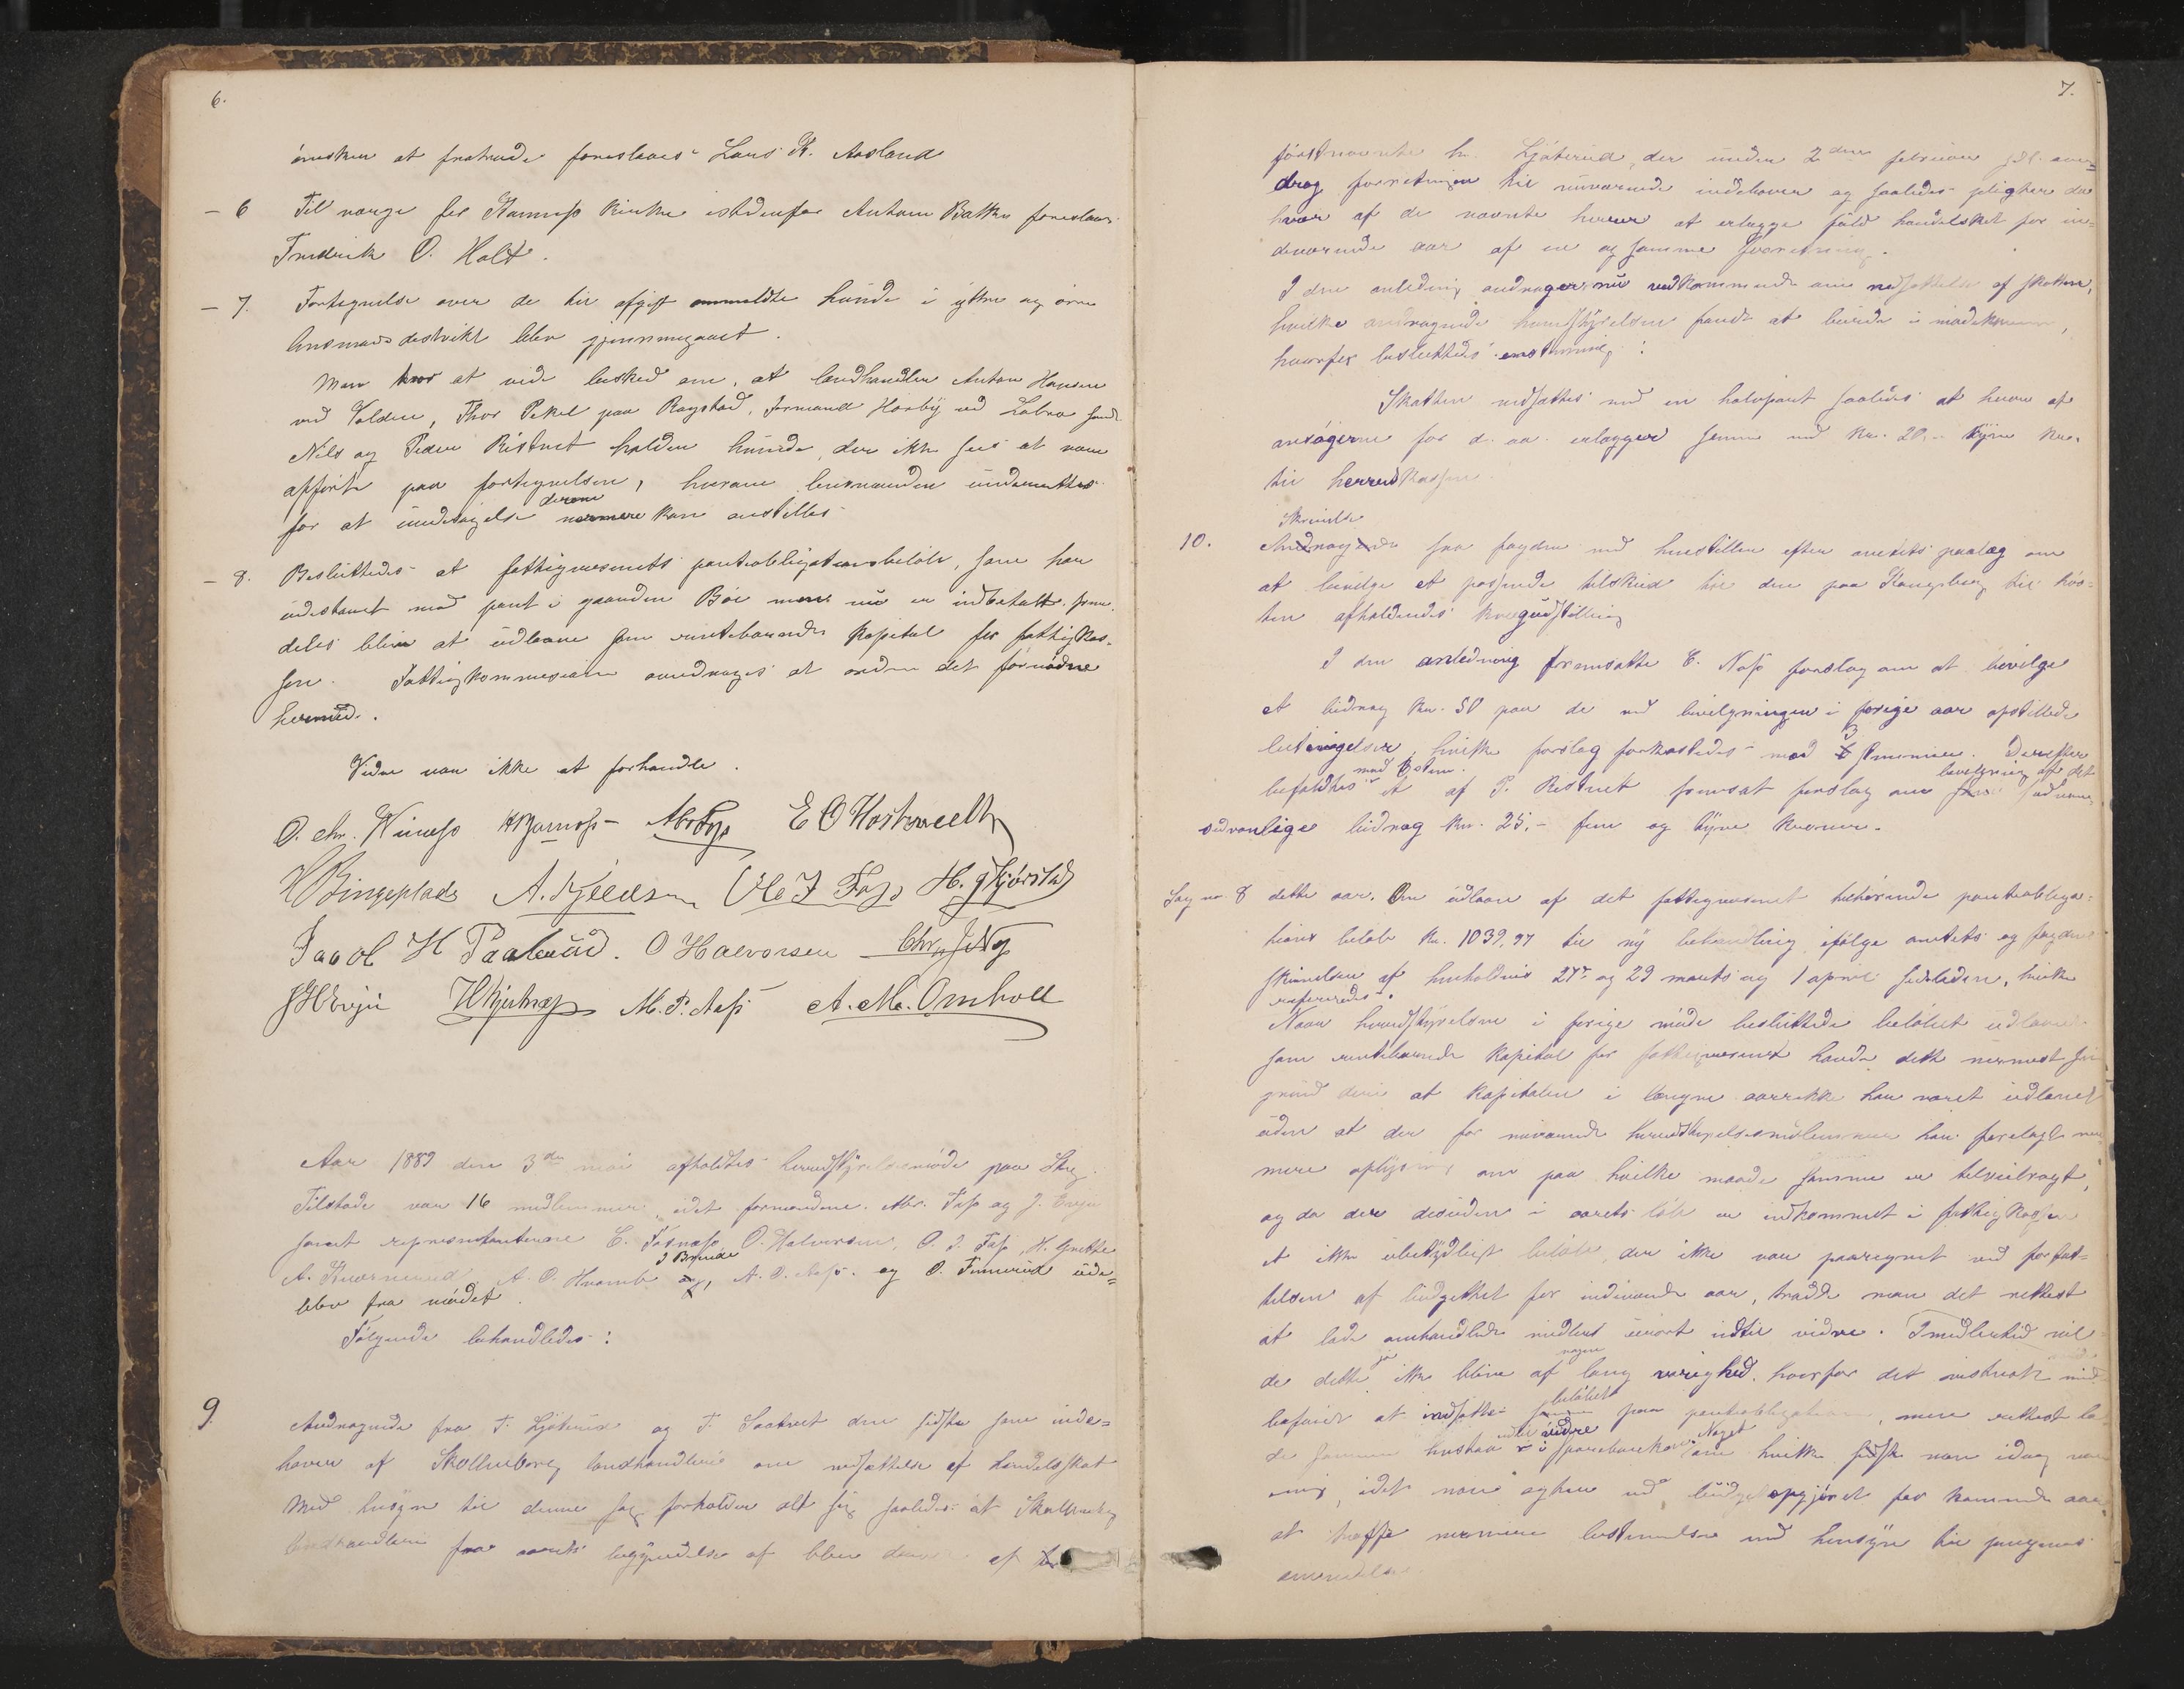 6.
ønsker at fratræde foreslaaes Lars K. Aasland
– 6 Til værge for Komnæs kirke istedenfor Anton Bakke foreslaaes
Fredrik O. Holt.
– 7. Fortegnelse over de til afgift anmeldte hunde i yttre og øvre
lensmandsdestrikt blev gjennemgaaet.
Man tror at vide besked om, at landhandler Anton Hansen
ved Volden, Thor Pekel paa Rogstad, formand Horby ved Labro samt
Nils og Peder Ristvet holder hunde, der ikke sees at være
opført paa fortegnelsen, hvorom lensmanden underrettes
for at undersøgelse derom kan anstilles
– 8. Besluttedes at fattigvæsenets panteobligationsbeløb, som har
udestaaet mod pant i gaarden Bøe men nu er indbetalt frem-
deles bliver at udlaane som rentebærende kapital for fattigkas-
sen. Fattigkommissionen anmodes at ordne det fornødne
hermed.
Videre var ikke at forhandle.
O. Chr. Winess E O Hostvedt
H Bingeplads A. Kjeldsen Ole J Foss H. Gjørstad
Jacob H Paalerud. O Halvorsen
J H Evju M. P. Næs A. M. Omholt
Aar 1889 den 3die mai afholdtes herredsstyrelsesmøde paa
Tilstede var 16 medlemmer, idet formændene Abr. Foss og J. Evju
samt repræsentanterne C. O. Halvorsen, O. J. Foss, H. Grette
A. A. O. Hvamb J Brunæs og, A. O. Næss. og O. Temmerud ude=
blev fra mødet.
Følgende behandledes:
9. Andragende fra T. Ljøterud og T. Saatvet den sidste som inde=
haver af Skollenborg landhandleri om nedsættelse af handelsskat
Med hensyn til denne sag forholder det sig saaledes at Skollenborg
landhandleri fra aarets begyndelse af blev drevet af
7.
førstnævnte hr. Ljøterud, der under 2den februar over=
drog forretningen til nuværende indehaver og saaledes pligter da
hver af de nævnte herrer at erlægge fuld handelsskat for in=
deværende aar af en og samme forretning.
I den anledning andrager nu vedkommende om nedsættelse af skatten,
hvilke andragende herredsstyrelsen fandt at burde imødekomme,
hvorfor besluttedes enstemmig:
Skatten nedsættes med en halvpart saaledes at hver af
ansøgerne for d. aa. erlægger samme med Kr. 20.- tyve kr.
til herredskassen.
10. Skrivelse fra fogden med henstillen efter amtets paalæg om
at bevilge et passende tilskud til den paa Kongsberg til høs=
ten afholdendes kvægudstilling
I den anledning fremsatte C. Næss forslag om at bevilge
et bidrag kr. 50 paa de ved bevilgningen i forige aar opstillede
betingelser, hvilke forslag forkastedes mod 3 stemmer. Derefter
befattedes et af P. Ristvet fremsat forslag om bevilgning af det
sedvanlige bidrag kr. 25.- fem og tyve kroner.
Sag no. 8 dette aar. Om udlaan af det fattigvæsenet tilhørende panteobliga=
tions beløb kr. 1039,97 til ny behandling ifølge amtets og fogdens
skrivelser af henholdsvis 27de og 29 marts og 1 april sidstleden, hvilke
refereredes.
Naar herredsstyrelsen i forige møde besluttede beløbet udlaanet
som rentebærende kapital for fattigvæsenet havde dette nærmest sin
grund deri at kapitalen i længre aarrække har været udlaanet
uden at der for nuværende herredsstyrelsesmedlemmer har forelagt nær
mere oplysning om paa hvilke maade samme er tilveiebragt,
og da der desuden i aarets løb er indkommet i fattigkassen
et ikke ubetydeligt beløb, der ikke var paaregnet ved forfat=
telsen af budgettet for indeværende aar, troede man det rettest
at lade omhandlede midler urørt indtil videre. Imidlertid vil
de dette jo ikke blive af nogen lang varighed, hvorfor det
beføiet at indsættes beløbet paa panteobligation, men rettest la
de samme henstaa indtil videre i sparebanken. Noget om hvilke man idag var
enig, idet man agter ved budgetopgjøret for kommende aar
at træffe nærmere bestemmelse med hensyn til pengenes
anvendelse.